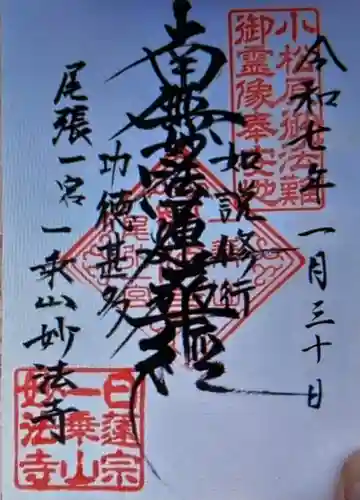 令和七年 一月三十日
小松原御法難
御霊像奉安地
如説修行
南無妙法蓮華経
功徳甚多
尾張一宮 一乗山妙法寺
日蓮宗
一乗山
妙法寺